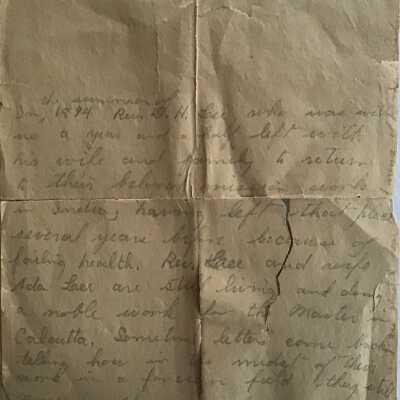 the summer of
In, 1894 Rev. D. H. Lee who was with
us a year and a half left with
his wife and family to return
to their beloved mission work
in India, having left that place
several years before because of
failing health. Rev Lee and wife
Ada Lee are still living and doing
a noble work for the Master in
Calcutta. Sometimes letters come back
telling how in the midst of their
work in a foreign field they still